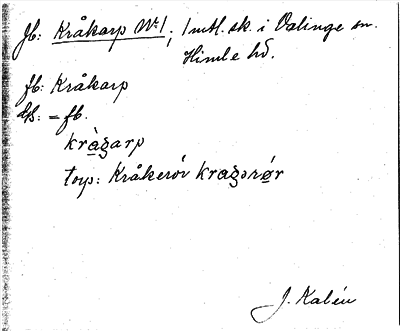 fb: Kråkarp No 1, 1 mtl. sk. i Valinge sn.
Himle hd.
fb: Kråkarp
dss: = fb.
kràgarp
torp: Kråkerör kragərør
J. Kalén